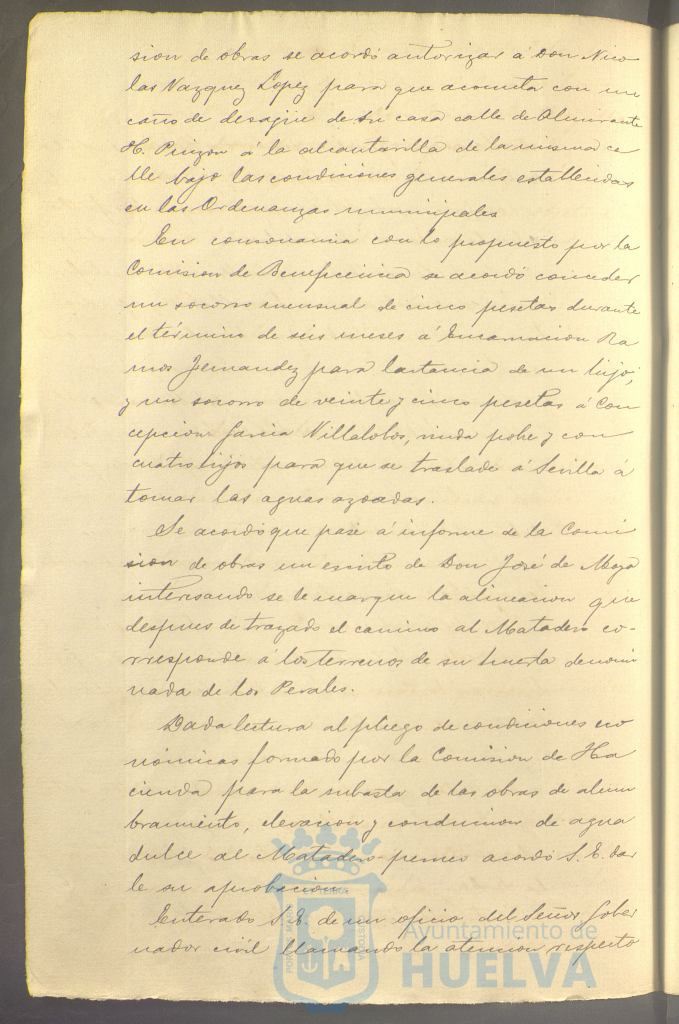 sion de obras se acordó autorizar á Don Nico
las Vazquez Lopez para que acometa con un
caño de desagüe de su casa calle de Almirante
H. Pinzon á la alcantarilla de la misma ca
lle bajo las condiciones generales establecidas
en las Ordenanzas municipales
En consonancia con lo propuesto por la
Comision de Beneficencia se acordó conceder
un socorro mensual de cinco pesetas durante
el término de seis meses á Encarnacion Ra
mos Fernandez para lactancia de un hijo;
y un socorro de veinte y cinco pesetas á Con
cepcion Garcia Villalobos, viuda pobre y con
cuatro hijos para que se traslade á Sevilla á
tomar las aguas azoadas.
Se acordó que pase á informe de la Comi
sion de obras un escrito de Don José de Moya
interesando se le marque la alineacion que
despues de trazado el camino al Matadero co-
rresponde á los terrenos de su huerta denomi
nada de los Perales.
Dada lectura al pliego de condiciones eco
nómicas formado por la Comision de Ha
cienda para la subasta de las obras de alum
bramiento, elevacion y conduccion de agua
dulce al Matadero acordó S. E. dar
le su aprobacion.
Enterado S. E. de un oficio del Señor Gober
nador civil llamando la atencion respecto
Ayuntamiento de
HUELVA